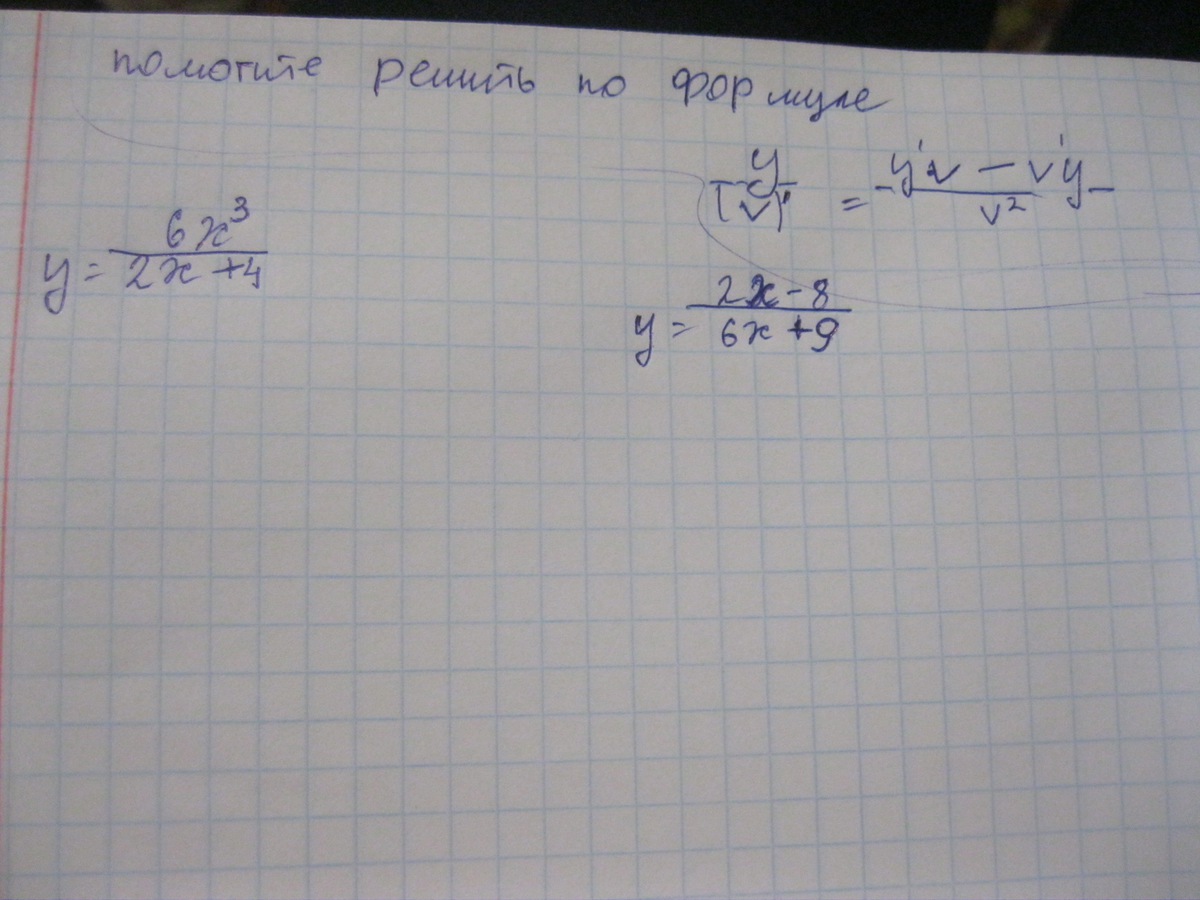 помогите решить по формуле
(y/v)' = y'v - v'y / v²
y = 6x³ / 2x + 4
y = 2x - 8 / 6x + 9